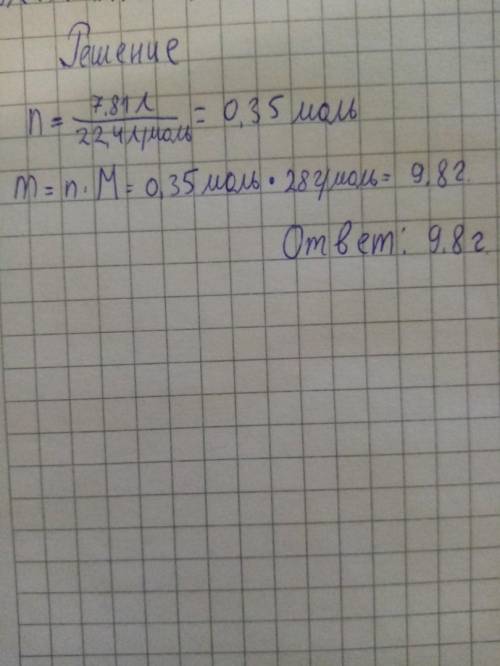 Решение
n = 7,81 л / 22,4 л/моль = 0,35 моль
m = n · M = 0,35 моль · 28 г/моль = 9,8 г.
Ответ: 9.8 г